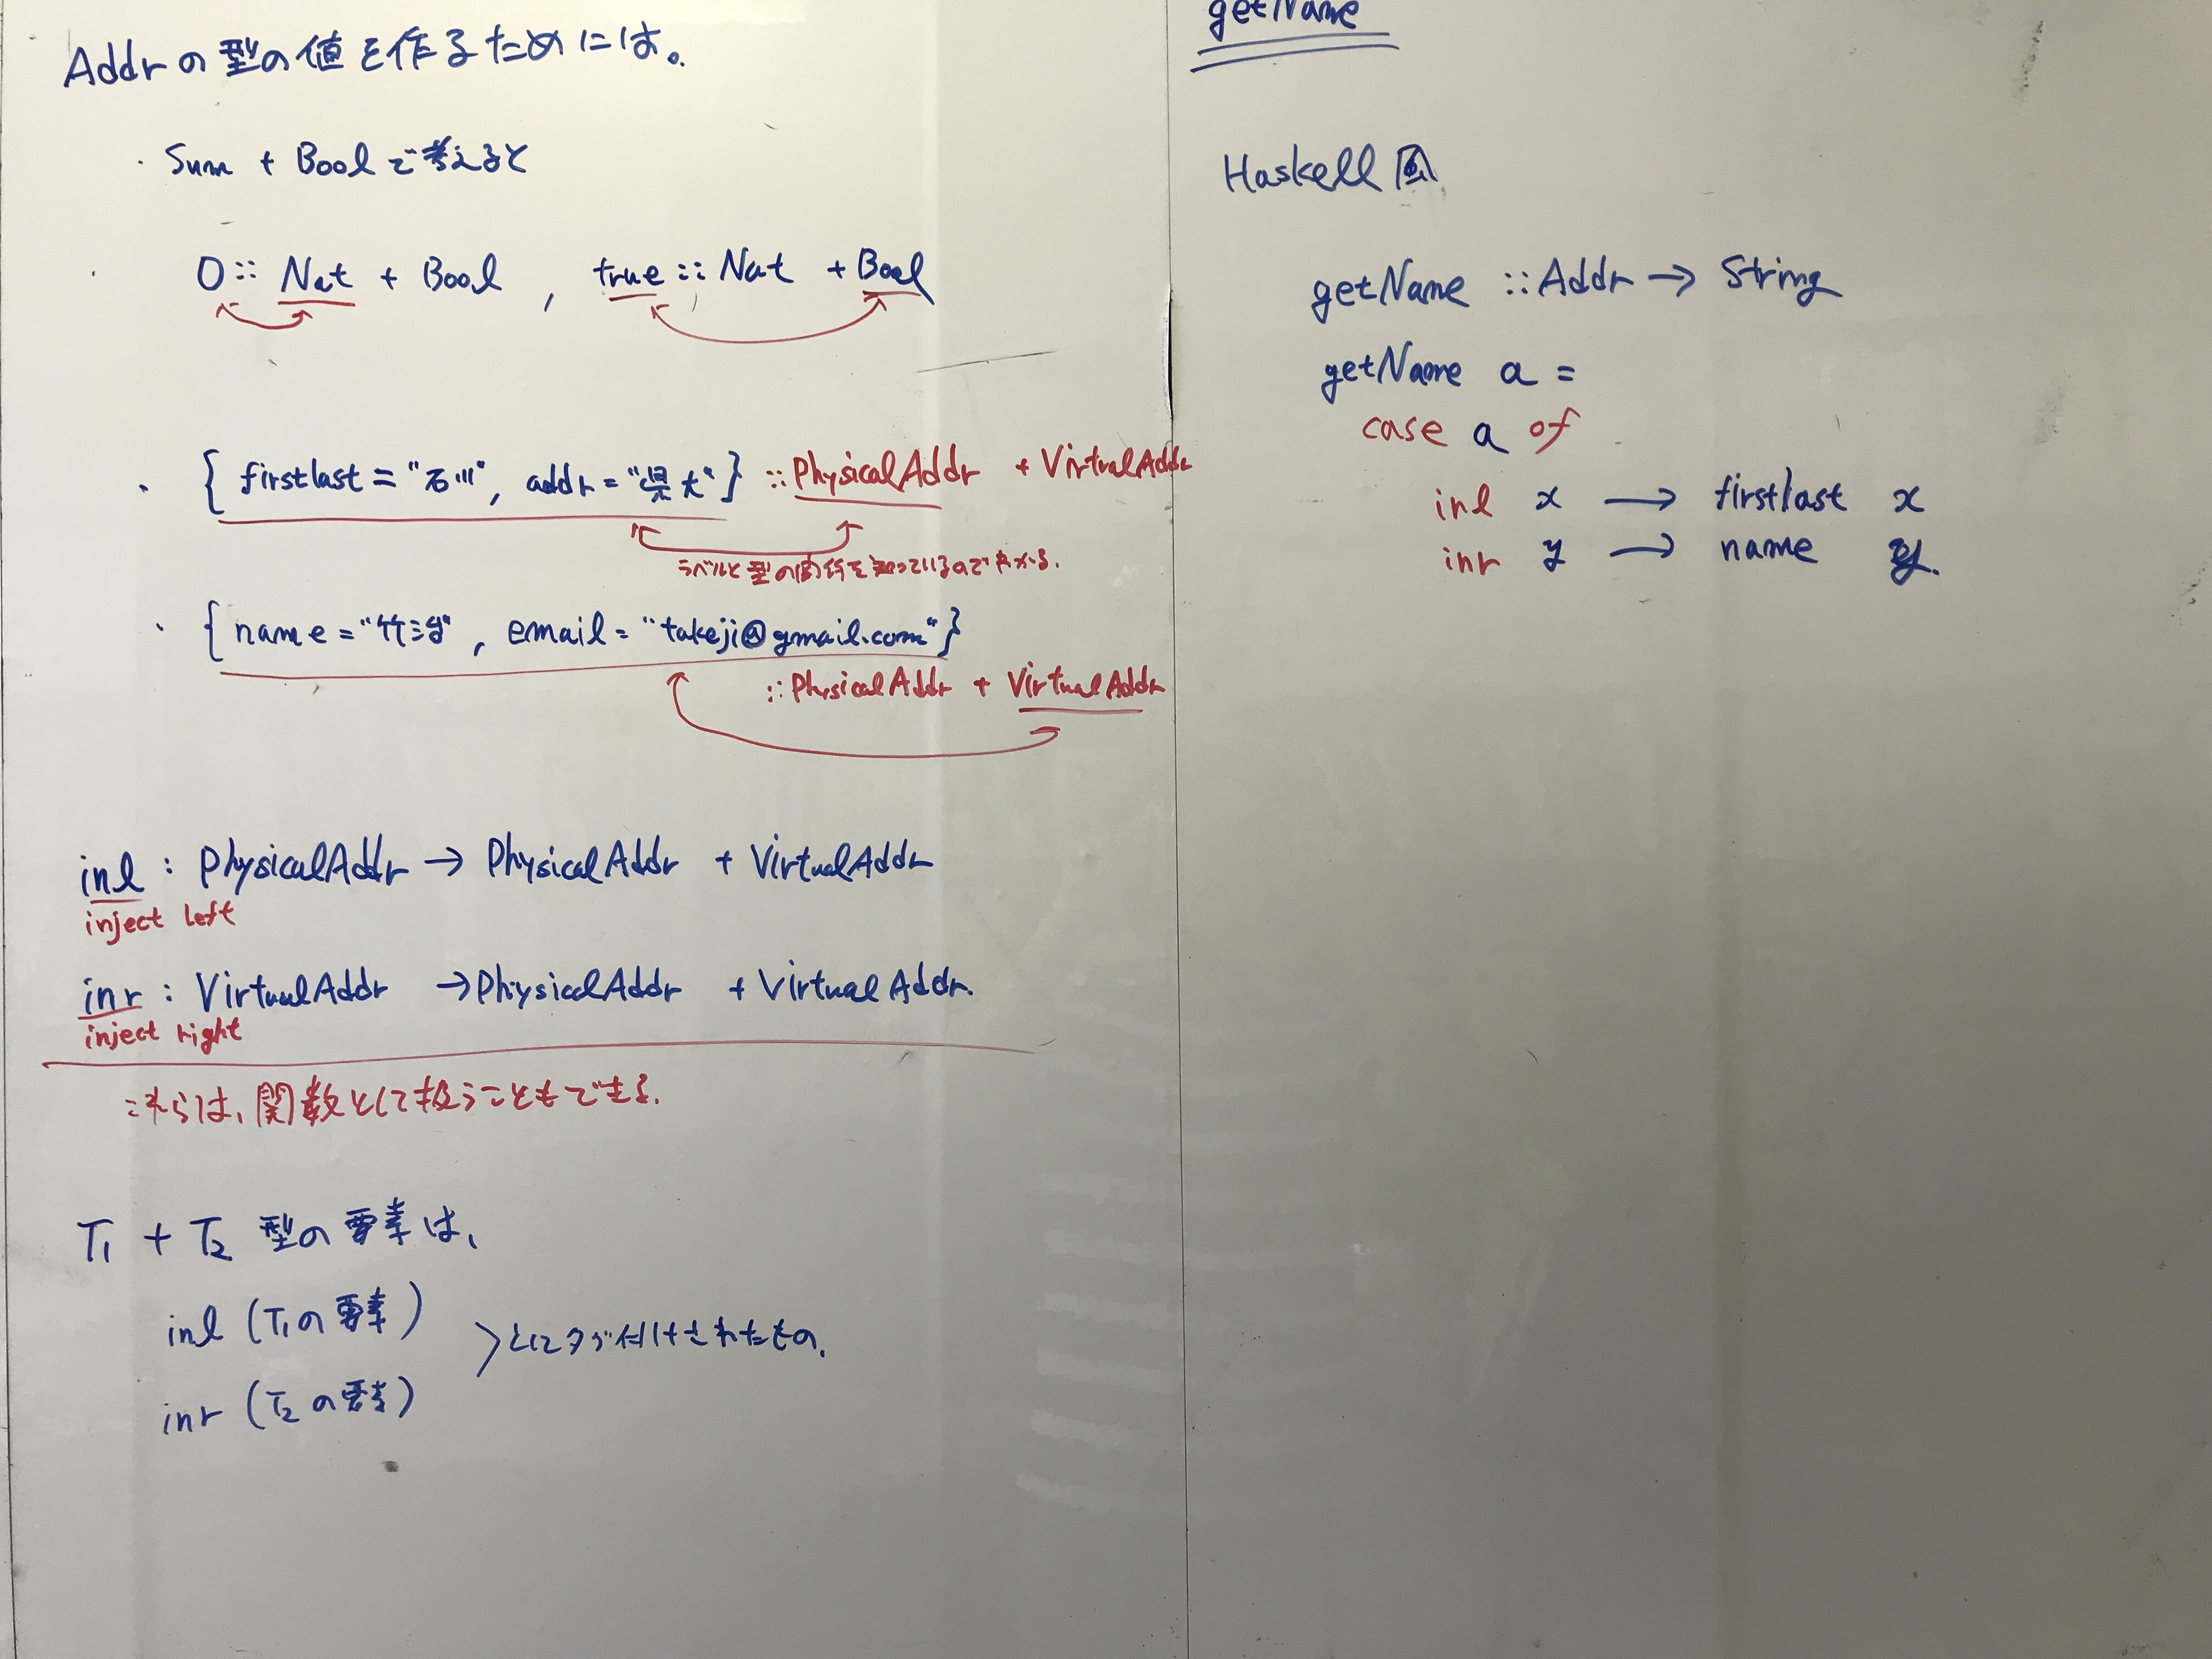 Addrの型の値を作るためには。
・Sum + Boolで考えると
・0 :: Nat + Bool , true :: Nat + Bool
・{ firstlast = "石川", addr = "県大" } :: PhysicalAddr + VirtualAddr
ラベルと型の関係を知っているのでわかる.
・{ name = "竹治", email = "takeji@gmail.com" }
:: PhysicalAddr + VirtualAddr
inl : PhysicalAddr → PhysicalAddr + VirtualAddr
inject left
inr : VirtualAddr → PhysicalAddr + VirtualAddr.
inject right
これらは、関数として扱うこともできる.
T1 + T2 型の要素は、
inl (T1の要素)
inr (T2の要素)
〉とにタグ付けされたもの.
getName
Haskell風
getName :: Addr → String
getName a =
case a of
inl x → firstlast x
inr y → name y.